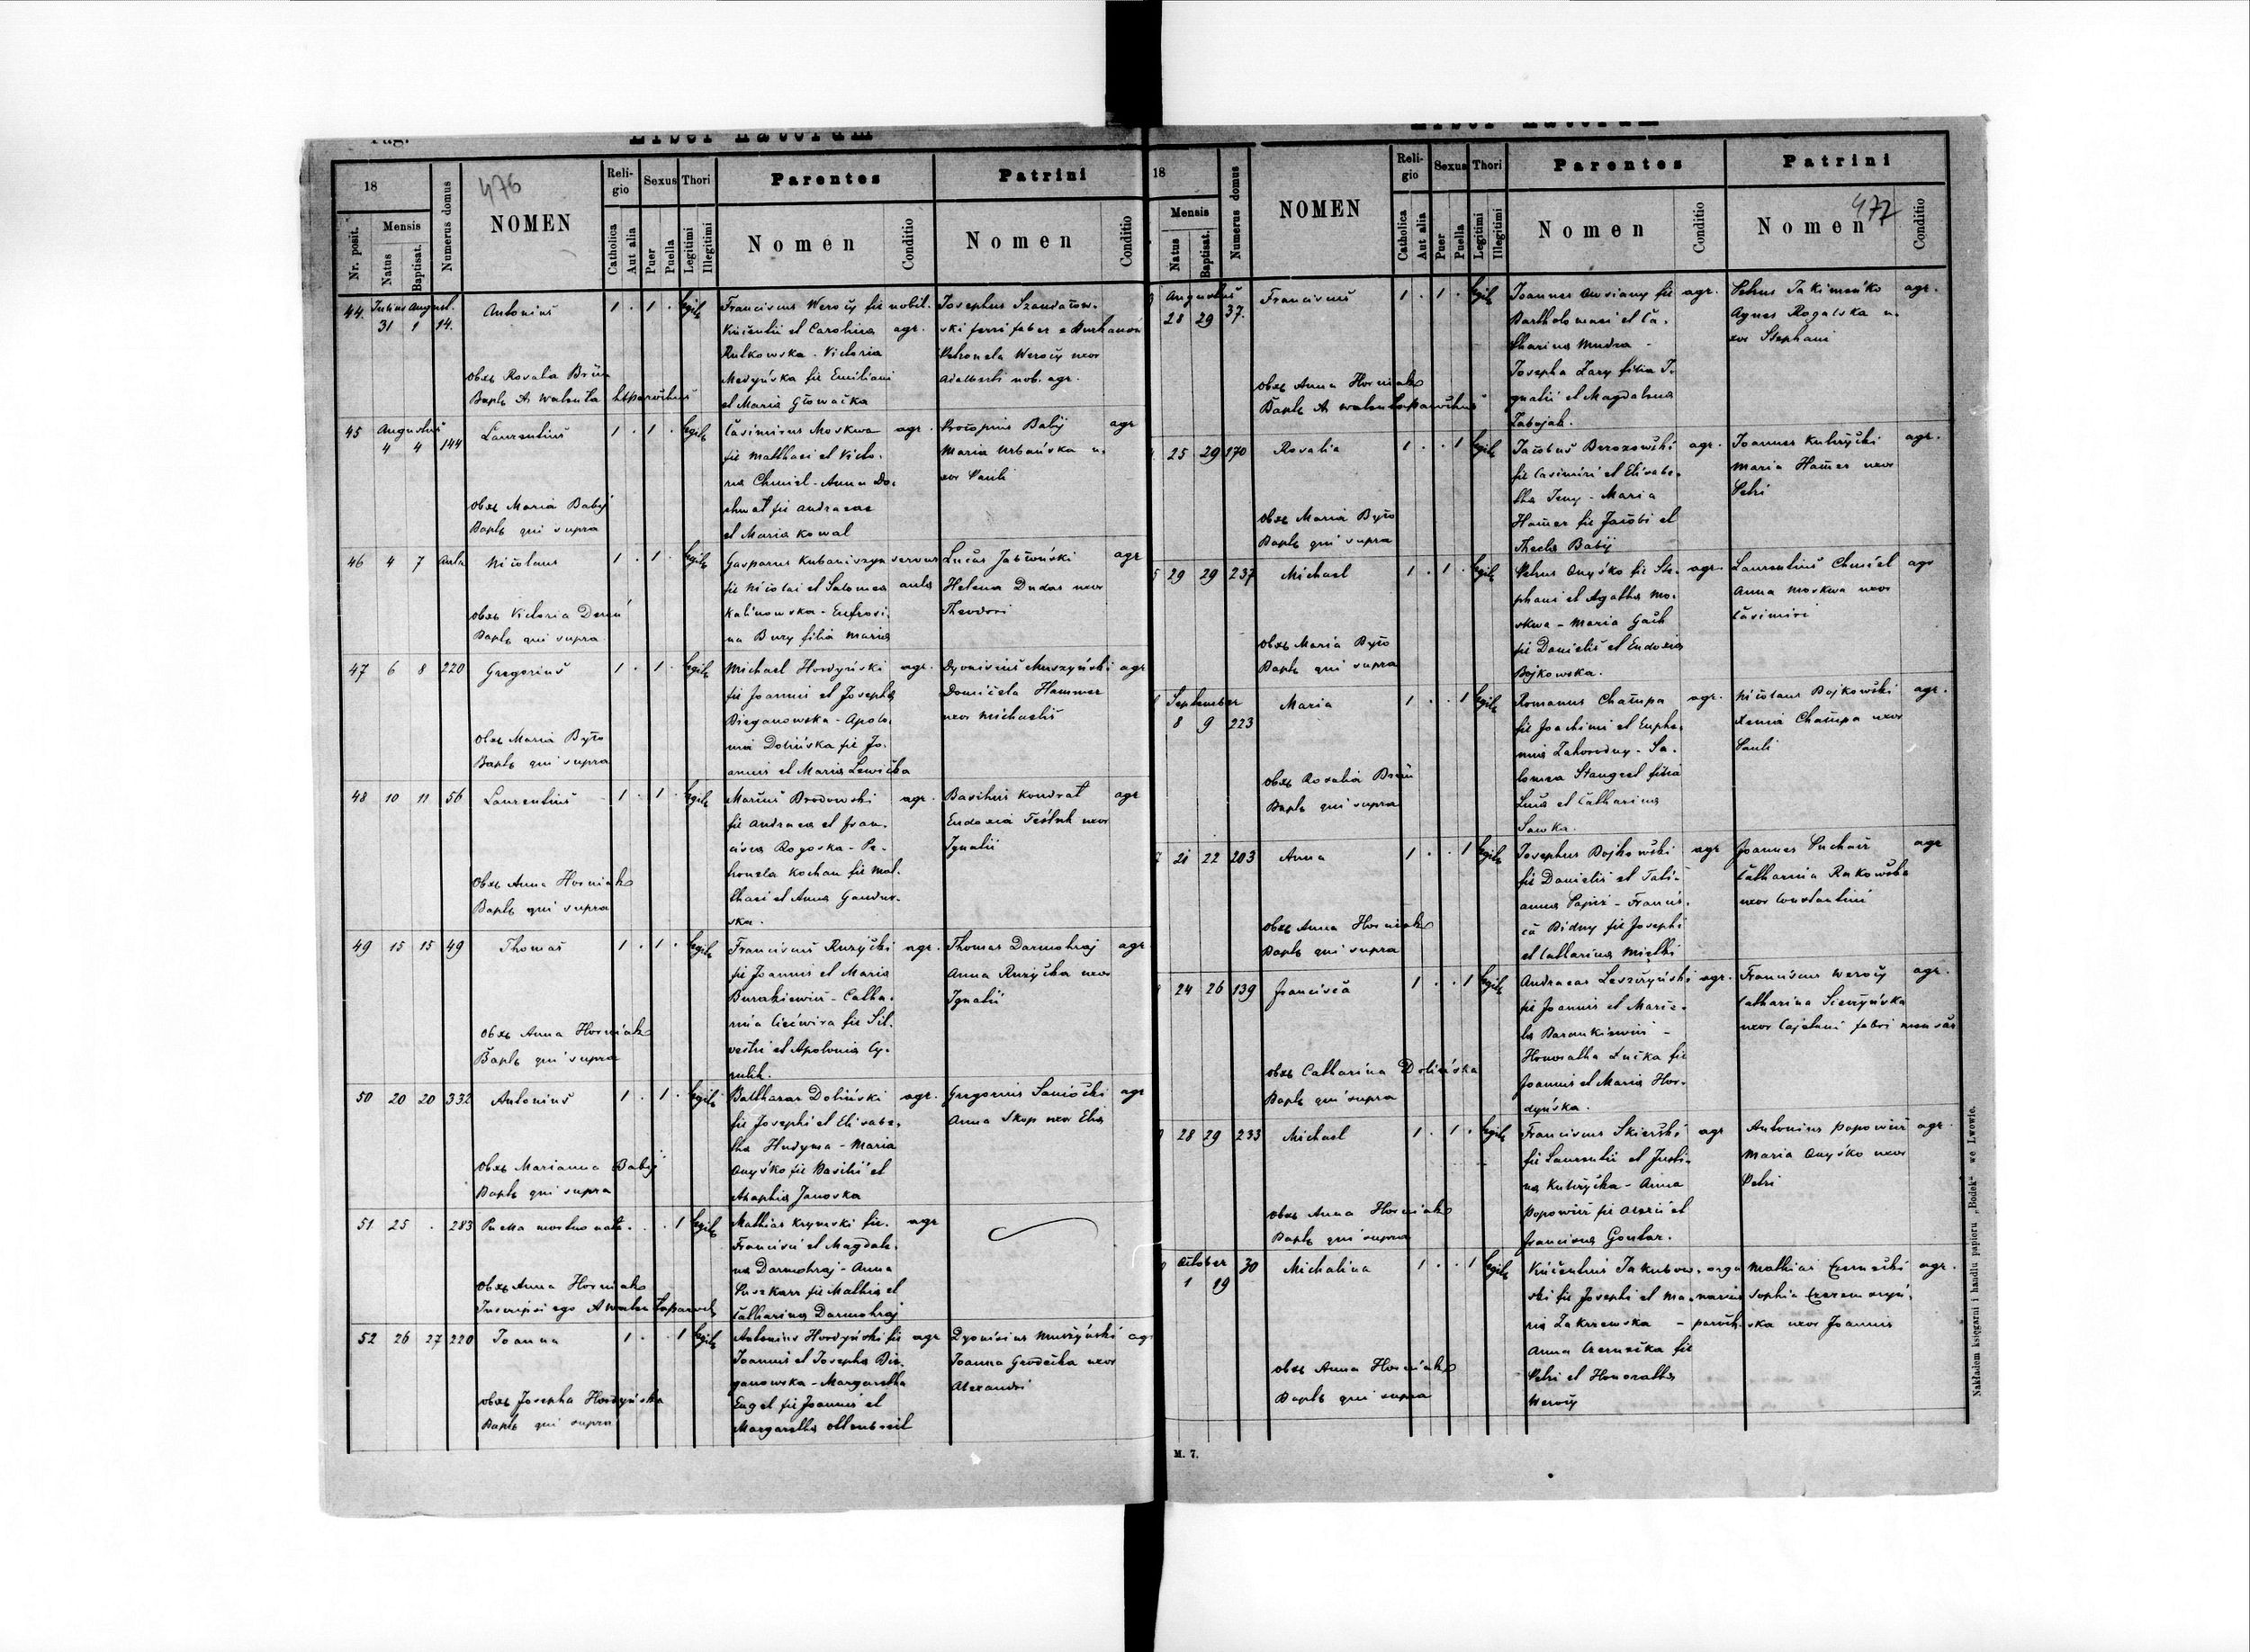 Liber natorum
18
476
Numerus domus
NOMEN
Reli-
gio
Sexus
Thori
Parentes
Patrini
Nr. posit.
Mensis
Natus
Baptisat.
Catholica
Aut alia
Puer
Puella
Legitimi
Illegitimi
Nomen
Conditio
Nomen
Conditio
44. Julius August. 14. Antonius 1 . 1 . legit.
31 1
Franciscus fil nobil.
et Carolina agr.
Rutkowska. Victoria
Medyńska fil Emiliani
et Maria Głowacka
Josephus
ski ferri faber
Petronela uxor
Adalberti nob. agr.
Obst Rosalia
Bapt. A.
45 Augustus
4 4 144 Laurentius 1 . 1 . legit.
Casimirus Moskwa agr.
fil Matthaei et Victo-
ria Chmiel - Anna Do-
fil Andreae
et Maria Kowal
Procopius Babij agr
Maria Urbańska u-
xor Pauli
Obst Maria Babij
Bapt. qui supra
46 4 7 Aula Nicolaus 1 . 1 . legit.
Gasparus Kubaniszyn servus
fil Nicolai et Salomea aula
Kalinowska - Eufrosi-
na Bury filia Maria
Lucas Jabłoński agr
Helena Dudar uxor
Theodori
Obst Victoria
Bapt. qui supra
47 6 8 220 Gregorius 1 . 1 . legit.
Michael Hordyński agr.
fil Joannis et Josepha
Bieganowska - Apolo-
nia Dolińska fil Jo-
annis et Maria Lewicka
Dyonisius Muszyński agr
Domicela Hammer
uxor Michaelis
Obst Maria Była
Bapt. qui supra
48 10 11 56 Laurentius 1 . 1 . legit.
Marcus Brodowski agr.
fil Andreae et Fran-
cisca Rogoska - Pe-
tronela Kochan fil Mat-
thaei et Anna
ska.
Basilius Kondrat agr
Eudoxia uxor
Ignatii
Obst Anna Horniak
Bapt. qui supra
49 15 15 49 Thomas 1 . 1 . legit.
Franciscus Ruzycki agr.
fil Joannis et Maria
Burakiewicz - Catha-
rina Ciećwira fil Sil-
vestri et Apolonia Cy-
rulik.
Thomas Darmohraj agr
Anna Ruzycka uxor
Ignatii
Obst Anna Horniak
Bapt. qui supra
50 20 20 332 Antonius 1 . 1 . legit.
Balthasar Doliński agr.
fil Josephi et Elisabe-
tha Hudyma - Maria
Onyśko fil Basilii et
Ahaphia Janoska
Gregorius Sanocki agr
Anna Skop uxor Elia
Obst Marianna Babij
Bapt. qui supra
51 25 . 283 Puella mortuo nata . . . 1 legit.
Mathias Krynski fil. agr
Francisci et Magdale-
na Darmohraj - Anna
Puszkarz fil Mathia et
Catharina Darmohraj
Obst Anna Horniak
Inscripsi ego A
52 26 27 220 Joanna 1 . . 1 legit.
Antonius Hordyński fil agr
Joannis et Josepha Bie-
ganowska - Margaretha
Engel fil Joannis et
Margaretha Ottenbreit
Dyonisius Muszyński agr
Joanna Grodecka uxor
Alexandri
Obst Josepha Hordyńska
Bapt. qui supra
Liber natorum
18
Mensis
Natus
Baptisat.
Numerus domus
NOMEN
Reli-
gio
Sexus
Thori
Parentes
Patrini
Catholica
Aut alia
Puer
Puella
Legitimi
Illegitimi
Nomen
Conditio
Nomen
477
Conditio
Augustus
28 29 37. Franciscus 1 . 1 . legit.
Joannes Owsiany fil agr.
Bartholomaei et Ca-
tharina Mudra -
Josepha Zary filia I-
gnatii et Magdalena
Zabojak.
Petrus Jakimeńko agr.
Agnes Rogalska u-
xor Stephani
Obst Anna Horniak
Bapt. A
25 29 170 Rosalia 1 . . 1 legit.
Jacobus Berozowski agr.
fil Casimiri et Elisabe-
tha Jeny - Maria
Hamer fil Jacobi et
Thecla Babij
Joannes Kubrycki agr.
Maria Hamer uxor
Petri
Obst Maria Była
Bapt. qui supra
29 29 237 Michael 1 . 1 . legit.
Petrus Onyśko fil Ste- agr.
phani et Agatha Mo-
skwa - Maria Gach
fil Danielis et Eudoxia
Bojkowska.
Laurentius Chmiel agr
Anna Moskwa uxor
Casimiri
Obst Maria Była
Bapt. qui supra
September
8 9 223 Maria 1 . . 1 legit.
Romanus Chalupa agr.
fil Joachimi et Euphe-
mia Zahorodny - Sa-
lomea Stangret filia
Luca et Catharina
Sawka.
Nicolaus Bojkowski agr.
Xenia Chalupa uxor
Pauli
Obst Rosalia
Bapt. qui supra
21 22 203 Anna 1 . . 1 legit.
Josephus Bojkowski agr
fil Danielis et Tati-
anna Papiz - Francis-
ca Bidny fil Josephi
et Catharina Mielki
Joannes agr
Catharina Rakowska
uxor Constantini
Obst Anna Horniak
Bapt. qui supra
24 26 139 Francisca 1 . . 1 legit.
Andreas Leszczyński agr.
fil Joannis et Marce-
la Barankiewicz -
Honoratha Łucka fil
Joannis et Maria Hor-
dyńska.
Franciscus agr.
Catharina
uxor Cajetani fabri
Obst Catharina Dolińska
Bapt. qui supra
28 29 233 Michael 1 . 1 . legit.
Franciscus Skierski agr
fil Laurentii et Justi-
na Kubrycka - Anna
Popowicz fil Alexii et
Francisca Gontar.
Antonius Popowicz agr.
Maria Onyśko uxor
Petri
Obst Anna Horniak
Bapt. qui supra
October
1 19 30 Michalina 1 . . 1 legit.
Vincentius Jakubow-
ski fil Josephi et Ma-
ria Zakrzewska -
Anna Czernecka fil
Petri et Honoratha
Mathias Czernecki agr.
Sophia
ska uxor Joannis
Obst Anna Horniak
Bapt. qui supra
M. 7.
Nakładem księgarni i handlu papieru „Bodek" we Lwowie.